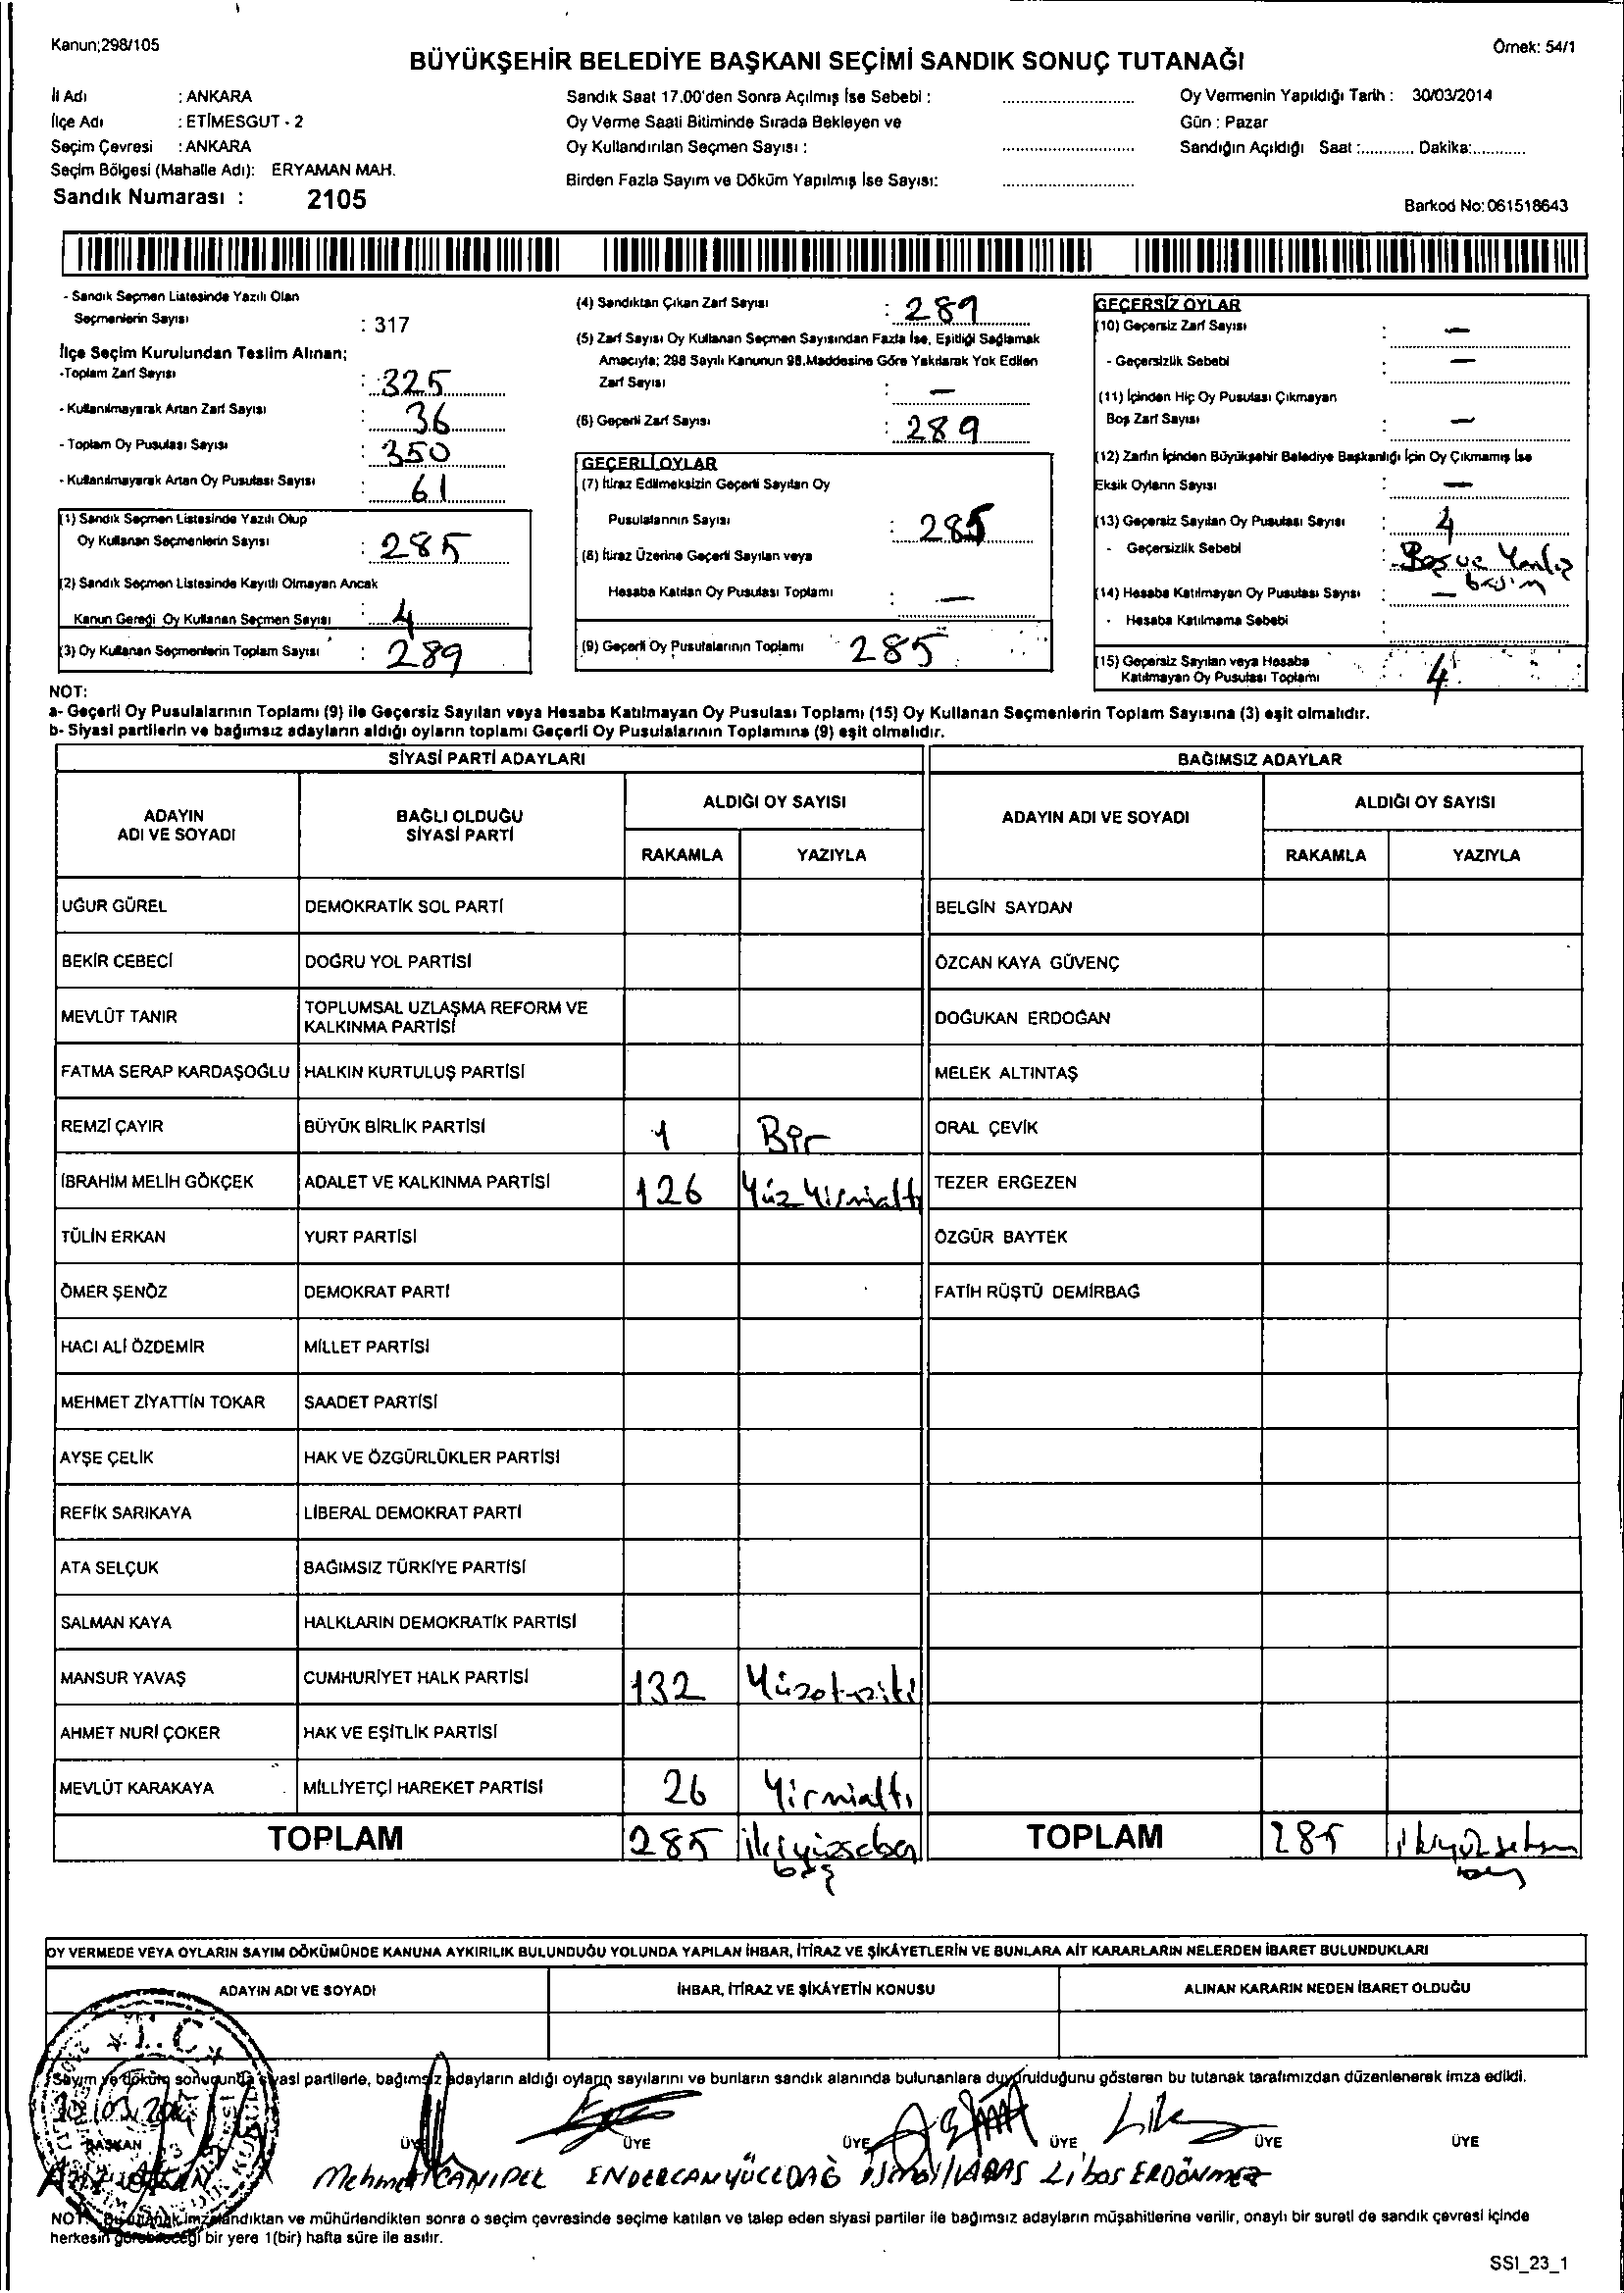 Kanun;298/105
Örnek: 54/1
BÜYÜKŞEHİR BELEDİYE BAŞKANI SEÇİMİ SANDIK SONUÇ TUTANAĞI
İl Adı : ANKARA
İlçe Adı : ETİMESGUT - 2
Seçim Çevresi : ANKARA
Seçim Bölgesi (Mahalle Adı): ERYAMAN MAH.
Sandık Numarası : 2105
Sandık Saat 17.00'den Sonra Açılmış İse Sebebi : ..............................
Oy Verme Saati Bitiminde Sırada Bekleyen ve
Oy Kullandırılan Seçmen Sayısı : ..............................
Birden Fazla Sayım ve Döküm Yapılmış İse Sayısı: ..............................
Oy Vermenin Yapıldığı Tarih : 30/03/2014
Gün : Pazar
Sandığın Açıldığı Saat :............ Dakika:............
Barkod No:061518643
- Sandık Seçmen Listesinde Yazılı Olan
Seçmenlerin Sayısı : 317
İlçe Seçim Kurulundan Teslim Alınan;
-Toplam Zarf Sayısı : 325
- Kullanılmayarak Artan Zarf Sayısı : 36
- Toplam Oy Pusulası Sayısı : 350
- Kullanılmayarak Artan Oy Pusulası Sayısı : 61
(1) Sandık Seçmen Listesinde Yazılı Olup
Oy Kullanan Seçmenlerin Sayısı : 285
(2) Sandık Seçmen Listesinde Kayıtlı Olmayan Ancak
Kanun Gereği Oy Kullanan Seçmen Sayısı : 4
(3) Oy Kullanan Seçmenlerin Toplam Sayısı : 289
(4) Sandıktan Çıkan Zarf Sayısı : 289
(5) Zarf Sayısı Oy Kullanan Seçmen Sayısından Fazla İse, Eşitliği Sağlamak
Amacıyla; 298 Sayılı Kanunun 98.Maddesine Göre Yakılarak Yok Edilen
Zarf Sayısı : —
(6) Geçerli Zarf Sayısı : 289
GEÇERLİ OYLAR
(7) İtiraz Edilmeksizin Geçerli Sayılan Oy
Pusulalarının Sayısı : 285
(8) İtiraz Üzerine Geçerli Sayılan veya
Hesaba Katılan Oy Pusulası Toplamı : —
(9) Geçerli Oy Pusulalarının Toplamı 285
GEÇERSİZ OYLAR
(10) Geçersiz Zarf Sayısı : —
- Geçersizlik Sebebi : —
(11) İçinden Hiç Oy Pusulası Çıkmayan
Boş Zarf Sayısı : —
(12) Zarfın İçinden Büyükşehir Belediye Başkanlığı İçin Oy Çıkmamış İse
Eksik Oyların Sayısı : —
(13) Geçersiz Sayılan Oy Pusulası Sayısı : 4
- Geçersizlik Sebebi : Boş ve Yanlış
basım
(14) Hesaba Katılmayan Oy Pusulası Sayısı : —
- Hesaba Katılmama Sebebi :
(15) Geçersiz Sayılan veya Hesaba
Katılmayan Oy Pusulası Toplamı 4
NOT:
a- Geçerli Oy Pusulalarının Toplamı (9) ile Geçersiz Sayılan veya Hesaba Katılmayan Oy Pusulası Toplamı (15) Oy Kullanan Seçmenlerin Toplam Sayısına (3) eşit olmalıdır.
b- Siyasi partilerin ve bağımsız adayların aldığı oyların toplamı Geçerli Oy Pusulalarının Toplamına (9) eşit olmalıdır.
SİYASİ PARTİ ADAYLARI BAĞIMSIZ ADAYLAR
ADAYIN ADI VE SOYADI BAĞLI OLDUĞU SİYASİ PARTİ ALDIĞI OY SAYISI ADAYIN ADI VE SOYADI ALDIĞI OY SAYISI
RAKAMLA YAZIYLA RAKAMLA YAZIYLA
UĞUR GÜREL DEMOKRATİK SOL PARTİ BELGİN SAYDAN
BEKİR CEBECİ DOĞRU YOL PARTİSİ ÖZCAN KAYA GÜVENÇ
MEVLÜT TANIR TOPLUMSAL UZLAŞMA REFORM VE KALKINMA PARTİSİ DOĞUKAN ERDOĞAN
FATMA SERAP KARDAŞOĞLU HALKIN KURTULUŞ PARTİSİ MELEK ALTINTAŞ
REMZİ ÇAYIR BÜYÜK BİRLİK PARTİSİ 1 Bir ORAL ÇEVİK
İBRAHİM MELİH GÖKÇEK ADALET VE KALKINMA PARTİSİ 126 Yüz Yirmialtı TEZER ERGEZEN
TÜLİN ERKAN YURT PARTİSİ ÖZGÜR BAYTEK
ÖMER ŞENÖZ DEMOKRAT PARTİ FATİH RÜŞTÜ DEMİRBAĞ
HACI ALİ ÖZDEMİR MİLLET PARTİSİ
MEHMET ZİYATTİN TOKAR SAADET PARTİSİ
AYŞE ÇELİK HAK VE ÖZGÜRLÜKLER PARTİSİ
REFİK SARIKAYA LİBERAL DEMOKRAT PARTİ
ATA SELÇUK BAĞIMSIZ TÜRKİYE PARTİSİ
SALMAN KAYA HALKLARIN DEMOKRATİK PARTİSİ
MANSUR YAVAŞ CUMHURİYET HALK PARTİSİ 132 Yüzotuziki
AHMET NURİ ÇOKER HAK VE EŞİTLİK PARTİSİ
MEVLÜT KARAKAYA MİLLİYETÇİ HAREKET PARTİSİ 26 Yirmialtı
TOPLAM 285 ikiyüzseksen beş TOPLAM 285 ikiyüzseksen beş
OY VERMEDE VEYA OYLARIN SAYIM DÖKÜMÜNDE KANUNA AYKIRILIK BULUNDUĞU YOLUNDA YAPILAN İHBAR, İTİRAZ VE ŞİKÂYETLERİN VE BUNLARA AİT KARARLARIN NELERDEN İBARET BULUNDUKLARI
ADAYIN ADI VE SOYADI İHBAR, İTİRAZ VE ŞİKÂYETİN KONUSU ALINAN KARARIN NEDEN İBARET OLDUĞU
T.C
Sayım ve döküm sonucunda siyasi partilerle, bağımsız adayların aldığı oyların sayılarını ve bunların sandık alanında bulunanlara duyurulduğunu gösteren bu tutanak tarafımızdan düzenlenerek imza edildi.
BAŞKAN ÜYE ÜYE ÜYE ÜYE ÜYE ÜYE
Mehmet CANIPEK ENDERCAN YÜCEDAĞ İsmail KARAS Libas ERDÖNMEZ
NOT: Bu tutanak imzalandıktan ve mühürlendikten sonra o seçim çevresinde seçime katılan ve talep eden siyasi partiler ile bağımsız adayların müşahitlerine verilir, onaylı bir sureti de sandık çevresi içinde
herkesin görebileceği bir yere 1(bir) hafta süre ile asılır.
SSI_23_1